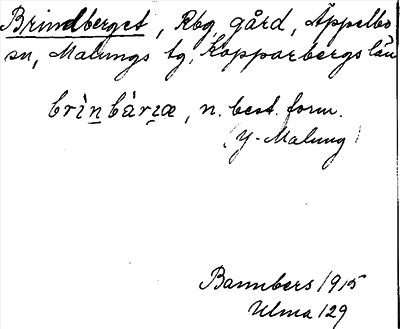 Brindberget, Rbg gård, Äppelbo
sn, Malungs tg, Kopparbergs län
brìn̠bàri̠æ, n. best. form.
(Y-Malung)
Bannbers 1915
Ulma 129